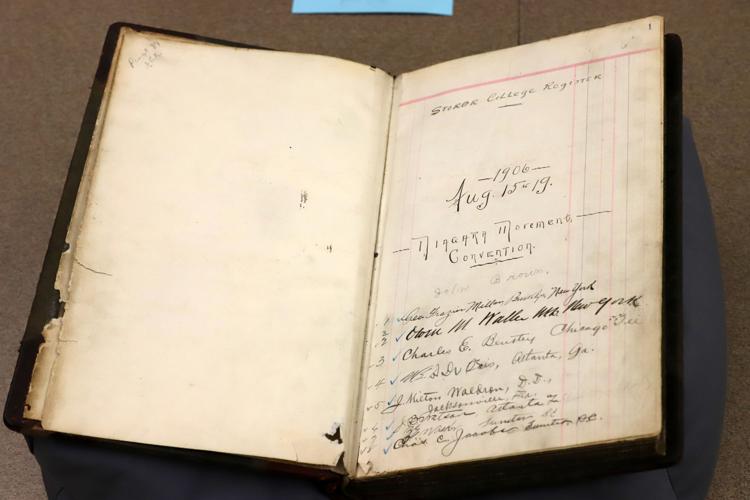 1
Storer College Register
—1906—
Aug. 15 to 19.
— Niagara Movement —
Convention.
John Brown.
1 Geo. Frazier Miller, Brooklyn, New York
2 Owen M Waller New York
3 Charles E. Bentley Chicago Ill
4 W. Atlanta, Ga.
5 J. Milton Waldron, D.D.,
Jacksonville, Fla.
6 J. Atlanta
Sumter SC
Chas. C. Jacobs Sumter S.C.